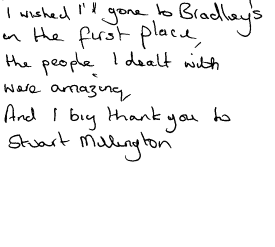 I wished I'll gone to Bradley's
in the first place,
the people I dealt with
were amazing
And I big thank you to
Stuart Millington